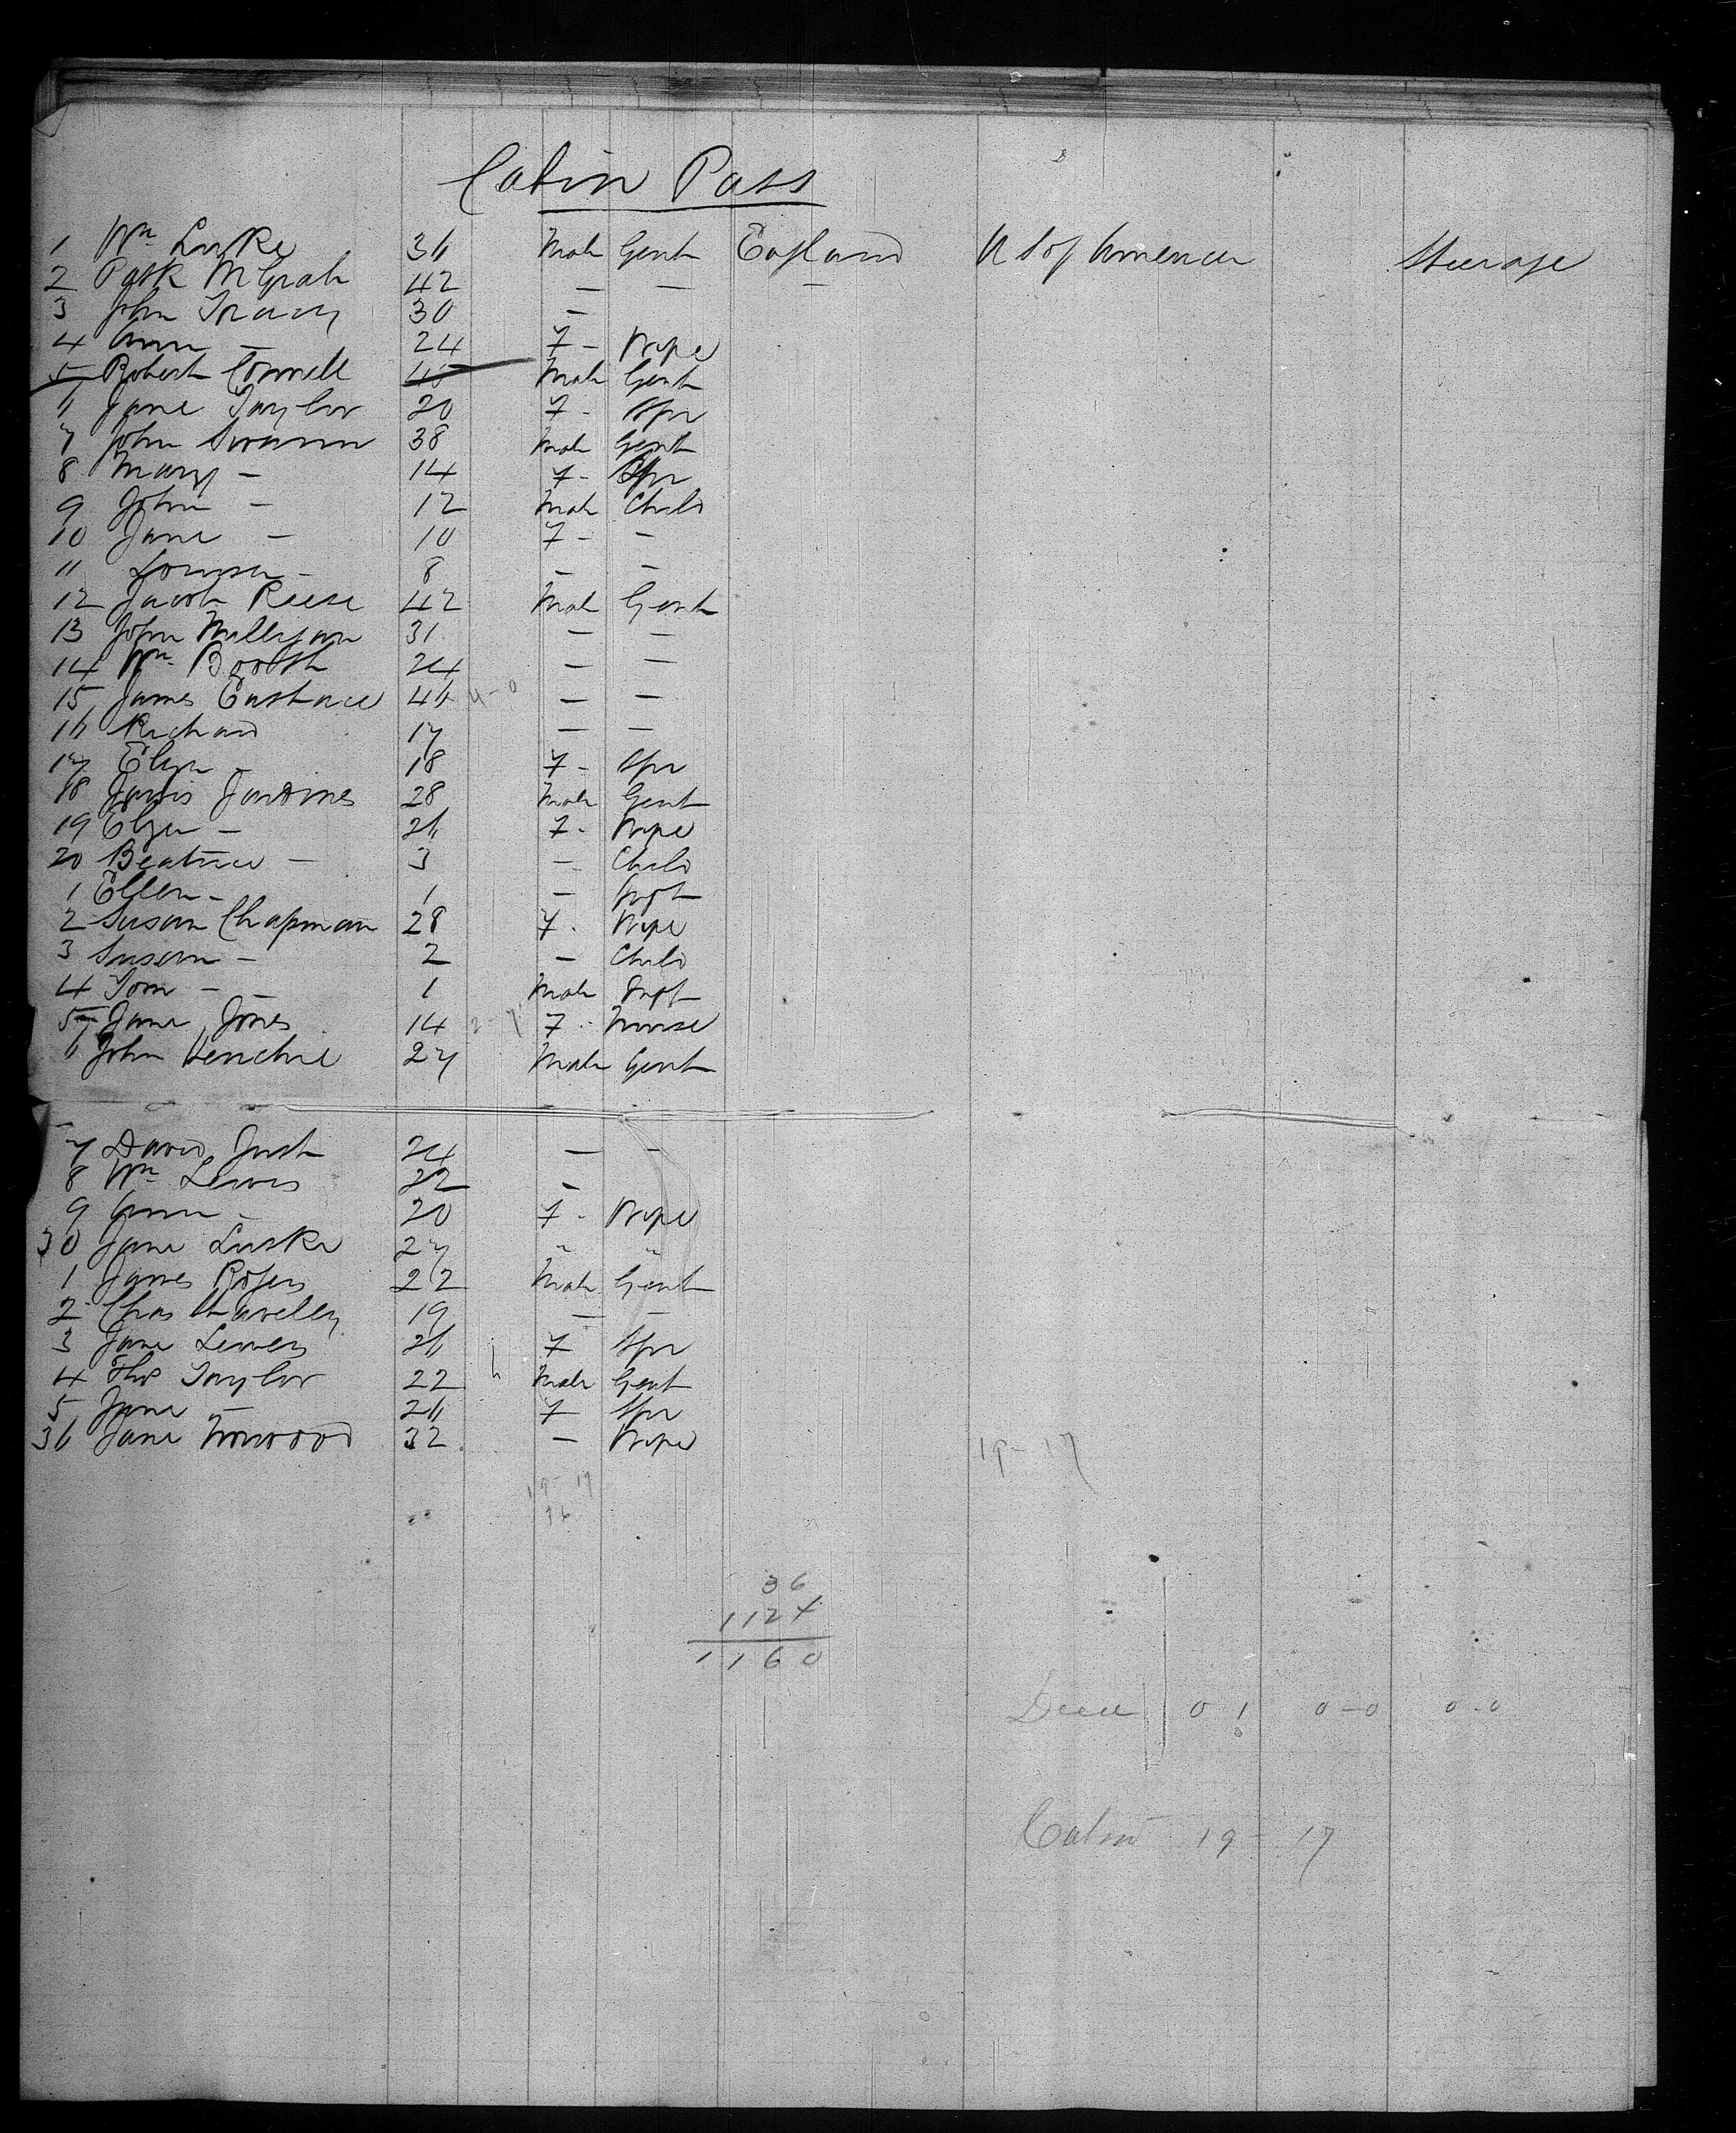 Cabin Pass
1 Wm Luske 36 Male Gent England U S of America Steerage
2 Patk McGrah 42 — — —
3 John Tracey 30 —
4 Ann — 24 F - Wife
5 Robert Connell 45 Male Gent
6 Jane Taylor 20 F - Spr
7 John Swann 38 Male Gent
8 Mary — 14 F - Spr
9 John — 12 Male Child
10 Jane — 10 F - —
11 Louisa — 8 — —
12 Jacob Reese 42 Male Gent
13 John Milligan 31 — —
14 Wm Booth 24 — —
15 James Eustace 46 4-0 — —
16 Richard 17 — —
17 Eliza — 18 F - Spr
18 Jardines 28 Male Gent
19 Eliza — 26 F - Wife
20 Beatrice — 3 — Child
1 Ellen — 1 — Inft
2 Susan Chapman 28 F - Wife
3 Susan — 2 — Child
4 Tom — 1 Male Inft
5 Jane Jones 14 2-7 F - Nurse
6 John 27 Male Gent
7 David Just 24 — —
8 Wm Lewis 22 —
9 Ann — 20 F - Wife
30 Jane Luske 27 " "
1 James Rogers 22 Male Gent
2 Chas 19 — —
3 Jane Lewers 26 F Spr
4 Thos Taylor 22 Male Gent
5 Jane — 26 F Spr
36 Jane Norwood 32 — Wife
19-17
19-17
36
36
1124
1160
0 1 0-0 0-0
0
Cabin 19-17